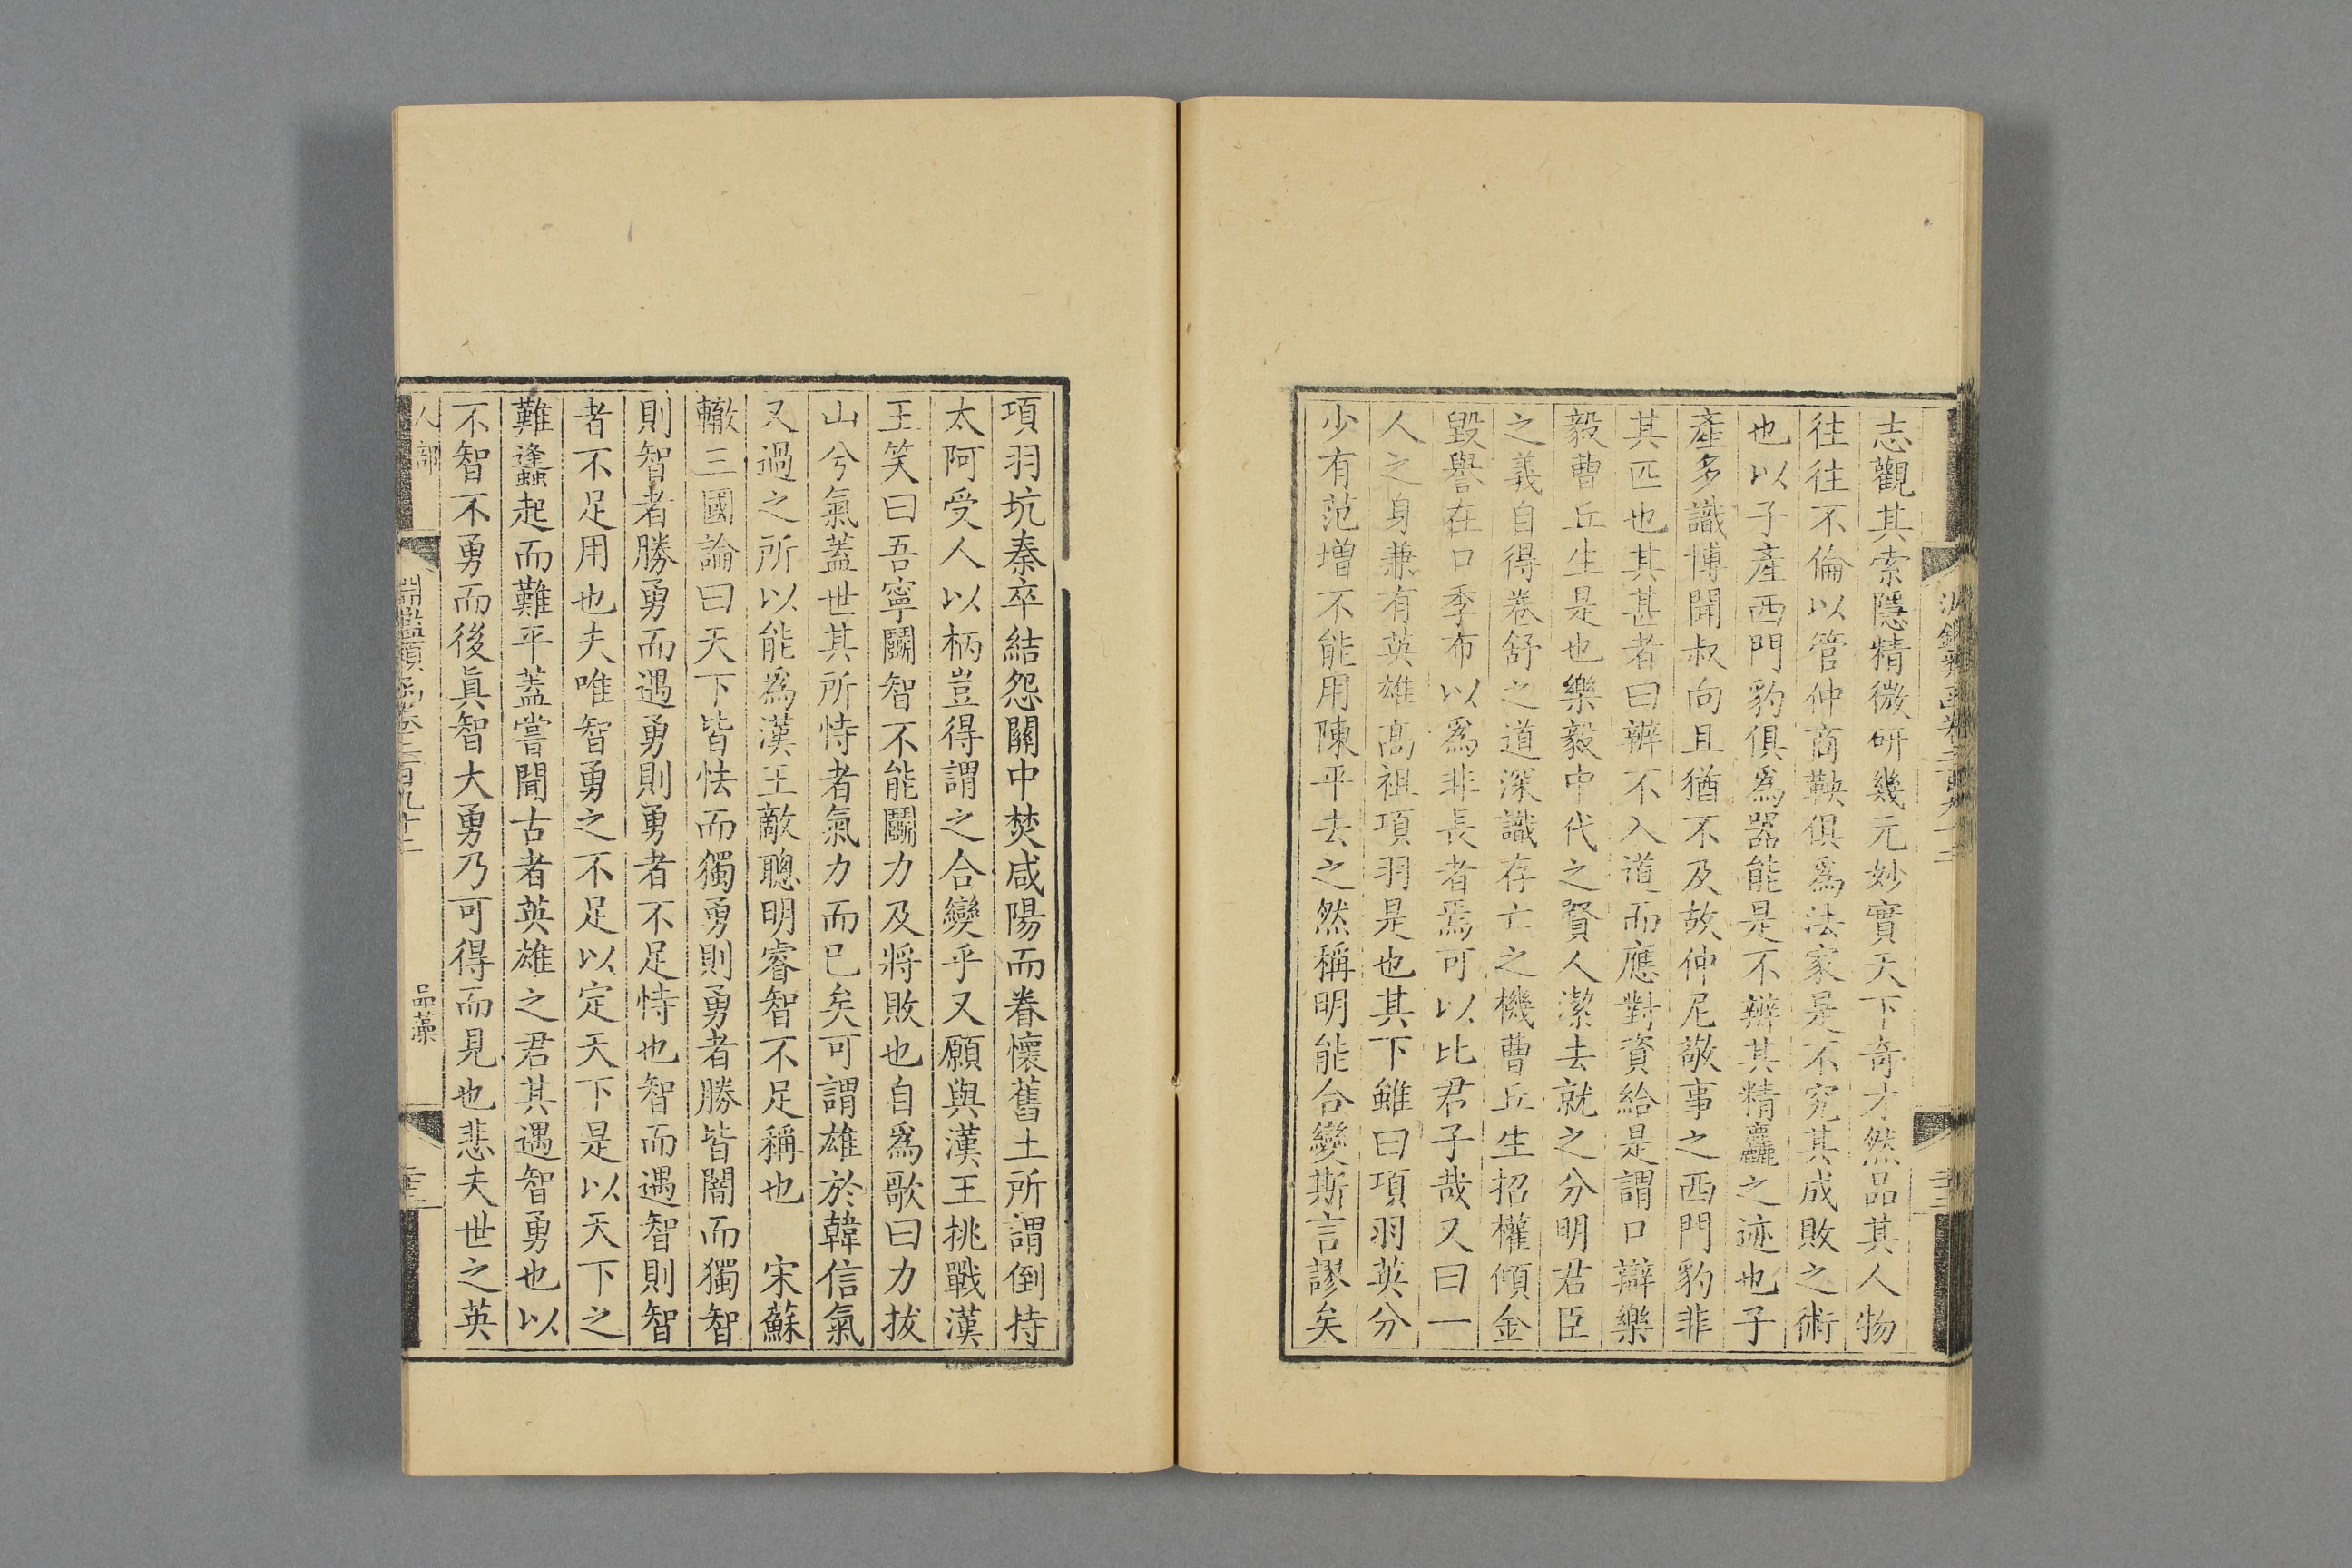 志觀其索隱精微研幾元妙實天下奇才然品其人物
往往不倫以管仲商鞅俱爲法家是不究其成敗之術
也以子產西門豹俱爲器能是不辨其精麤之迹也子
產多識博聞叔向且猶不及故仲尼敬事之西門豹非
其匹也其甚者曰辨不入道而應對資給是謂口辯樂
毅曹丘生是也樂毅中代之賢人潔去就之分明君臣
之義自得卷舒之道深識存亡之機曹丘生招權傾金
毀譽在口季布以爲非長者焉可以比君子哉又曰一
人之身兼有英雄高祖項羽是也其下雖曰項羽英分
少有范增不能用陳平去之然稱明能合變斯言謬矣
項羽坑秦卒結怨關中焚咸陽而眷懷舊土所謂倒持
太阿受人以柄豈得謂之合變乎又願與漢王挑戰漢
王笑曰吾寧鬭智不能鬭力及將敗也自爲歌曰力拔
山兮氣蓋世其所恃者氣力而已矣可謂雄於韓信氣
又過之所以能爲漢王敵聰明睿智不足稱也　宋蘇
轍三國論曰天下皆怯而獨勇則勇者勝皆闇而獨智
則智者勝勇而遇勇則勇者不足恃也智而遇智則智
者不足用也夫唯智勇之不足以定天下是以天下之
難蠭起而難平蓋嘗聞古者英雄之君其遇智勇也以
不智不勇而後眞智大勇乃可得而見也悲夫世之英
人部
淵鑑類函卷二百九十二
品藻